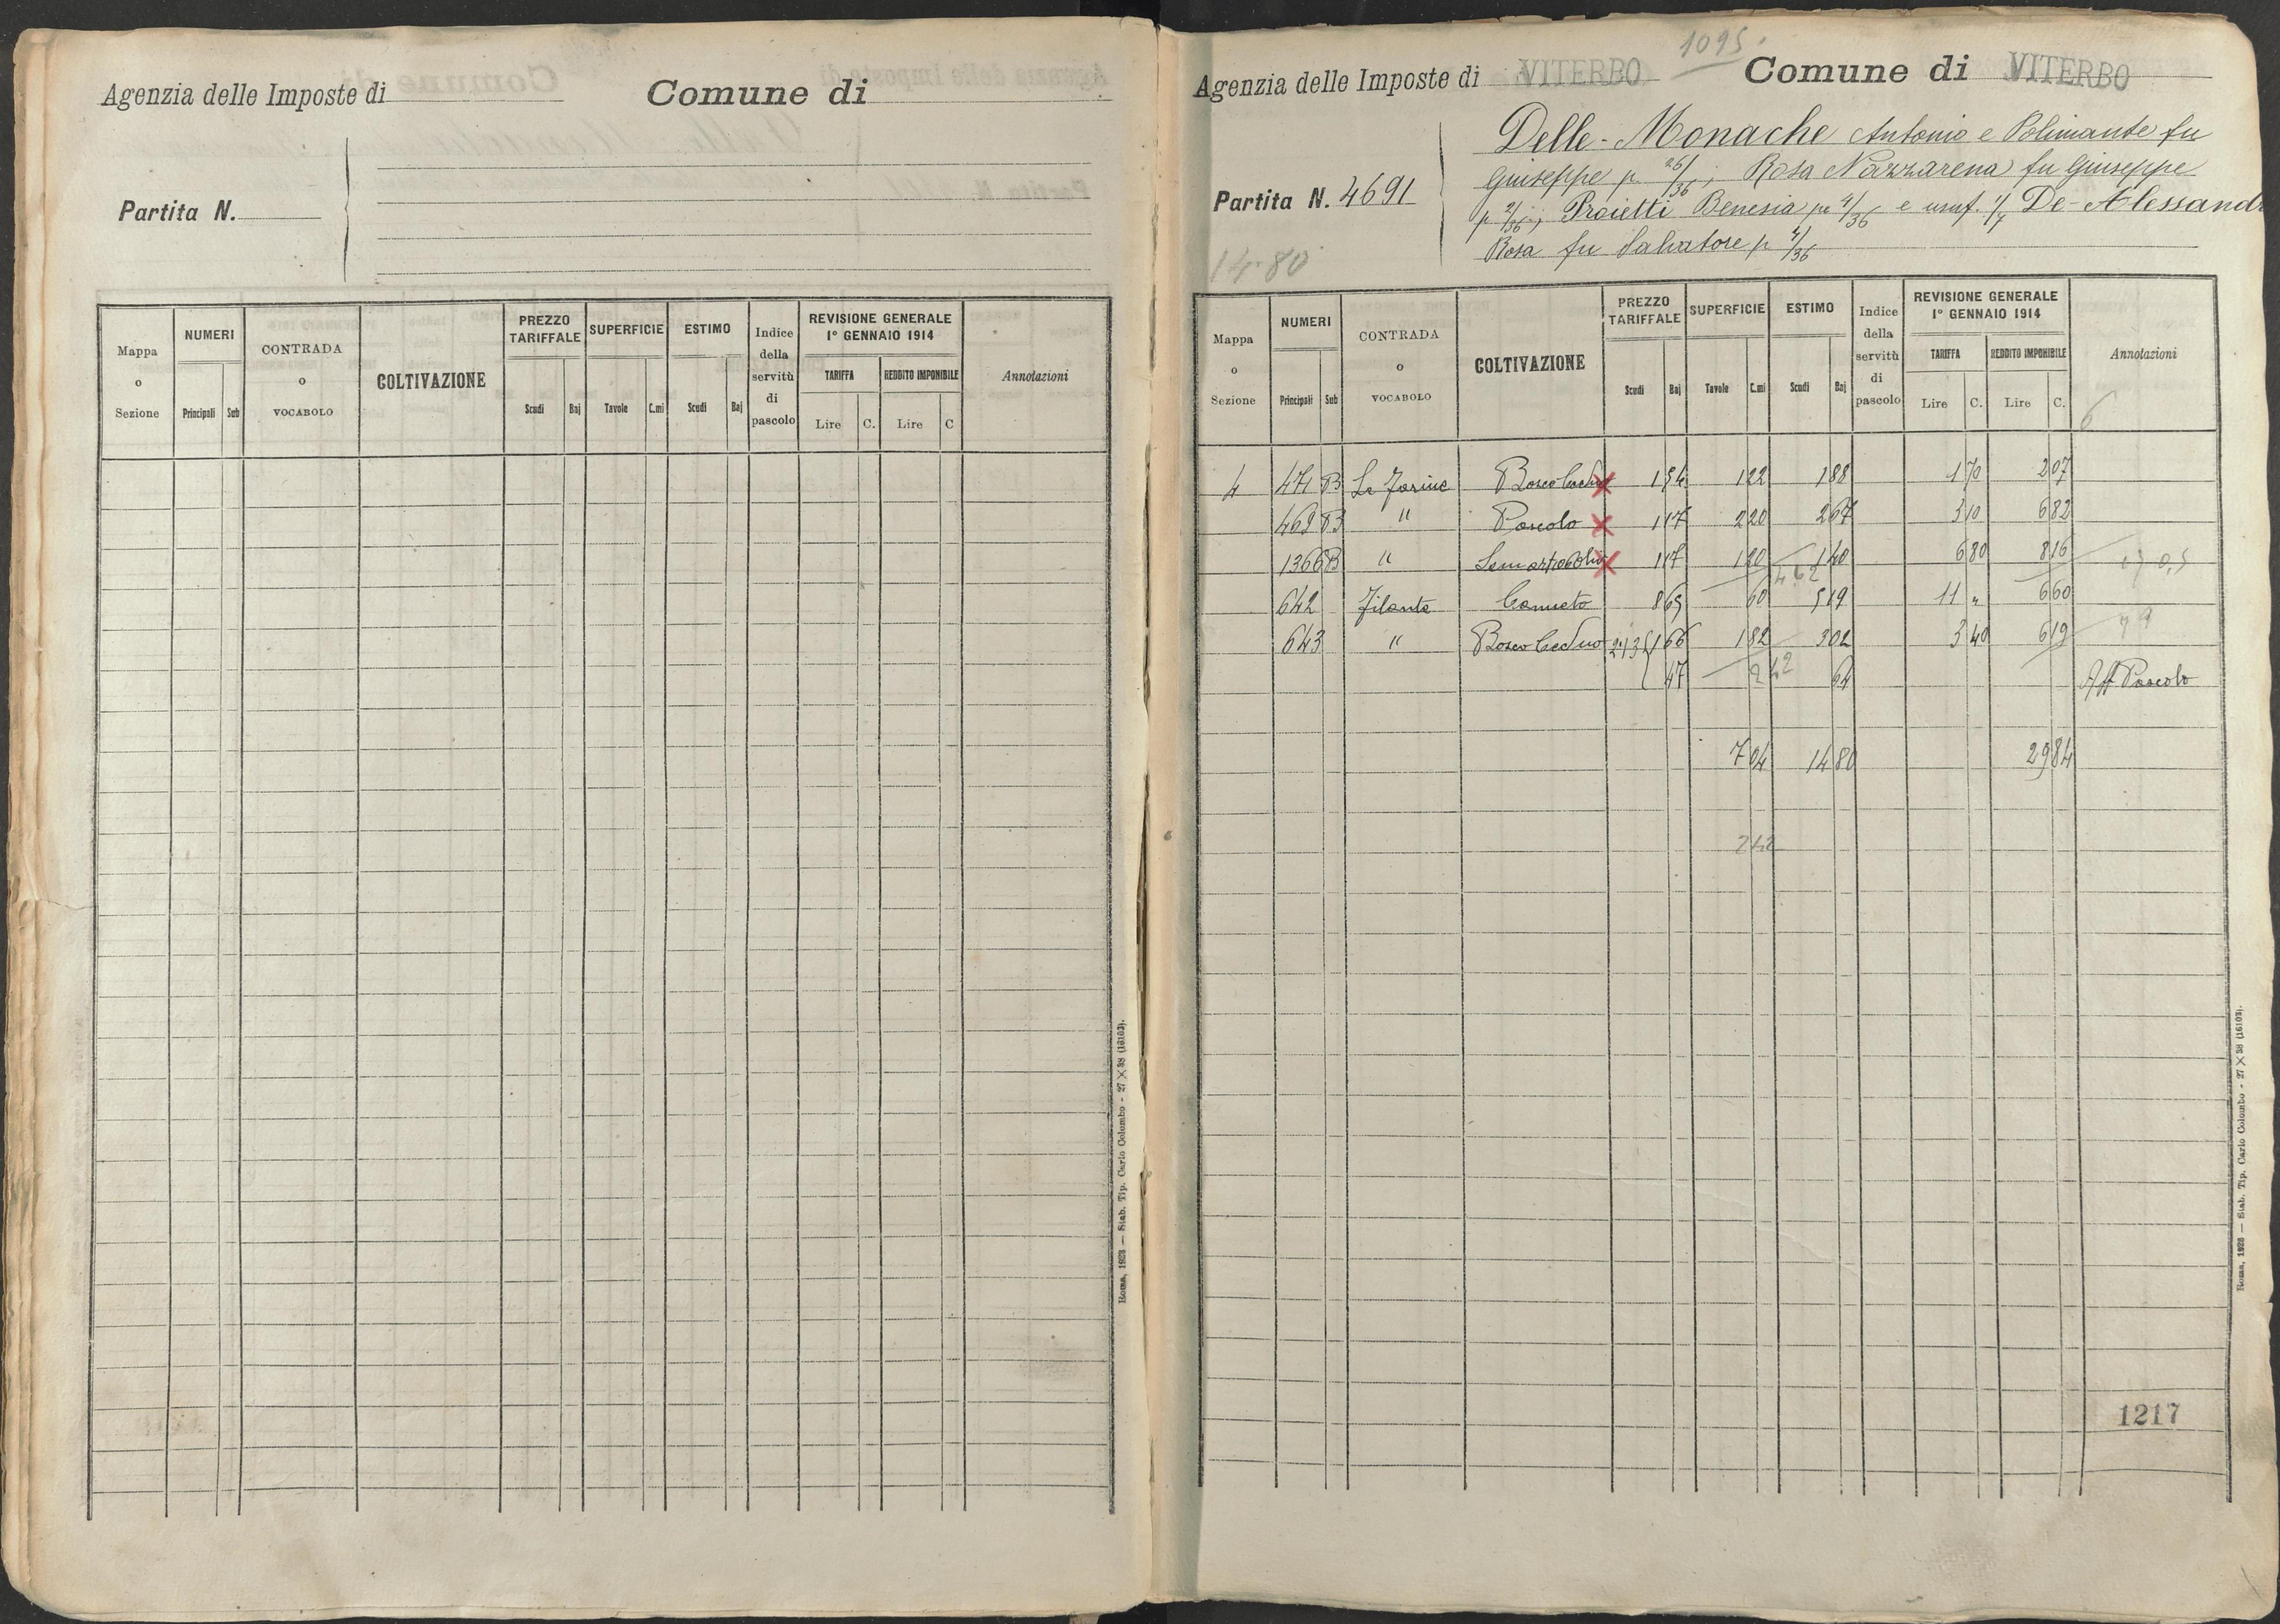 Agenzia delle Imposte di Comune di
Partita N.
Mappa o Sezione NUMERI Principali Sub CONTRADA o VOCABOLO COLTIVAZIONE PREZZO TARIFFALE Scudi Baj SUPERFICIE Tavole C.mi ESTIMO Scudi Baj Indice della servitù di pascolo REVISIONE GENERALE 1° GENNAIO 1914 TARIFFA Lire C. REDDITO IMPONIBILE Lire C Annotazioni
Roma, 1923 — Stab. Tip. Carlo Colombo - 27 X 38 (16103).
1095
Agenzia delle Imposte di VITERBO Comune di VITERBO
Delle-Monache Antonio e Polimante fu
Giuseppe p. 26/36; Rosa Nazzarena fu Giuseppe
Partita N. 4691
p 2/36; Proietti Benesia pr 4/36 e usuf. 1/7 De-Alessandr
Rosa fu Salvatore p 4/36
14.80
Mappa o Sezione NUMERI Principali Sub CONTRADA o VOCABOLO COLTIVAZIONE PREZZO TARIFFALE Scudi Baj SUPERFICIE Tavole C.mi ESTIMO Scudi Baj Indice della servitù di pascolo REVISIONE GENERALE 1° GENNAIO 1914 TARIFFA Lire C. REDDITO IMPONIBILE Lire C. Annotazioni
6
4 471 B Le Farine Bosco Ceduo 1 54 1 22 1 88 1 70 2 07
469 B " Pascolo 1 17 2 20 2 67 3 10 6 82
1366 B " 1 17 1 20 1 40 6 80 8 16
4 62
642 Filante Canneto 8 65 60 5 19 11 " 6 60
643 " Bosco Ceduo 2.13 1 66 1 82 3 02 3 40 6 19
47 2 42 64 Aff Pascolo
7 04 14 80 29 84
242
1217
Roma, 1923 — Stab. Tip. Carlo Colombo - 27 X 38 (16103).